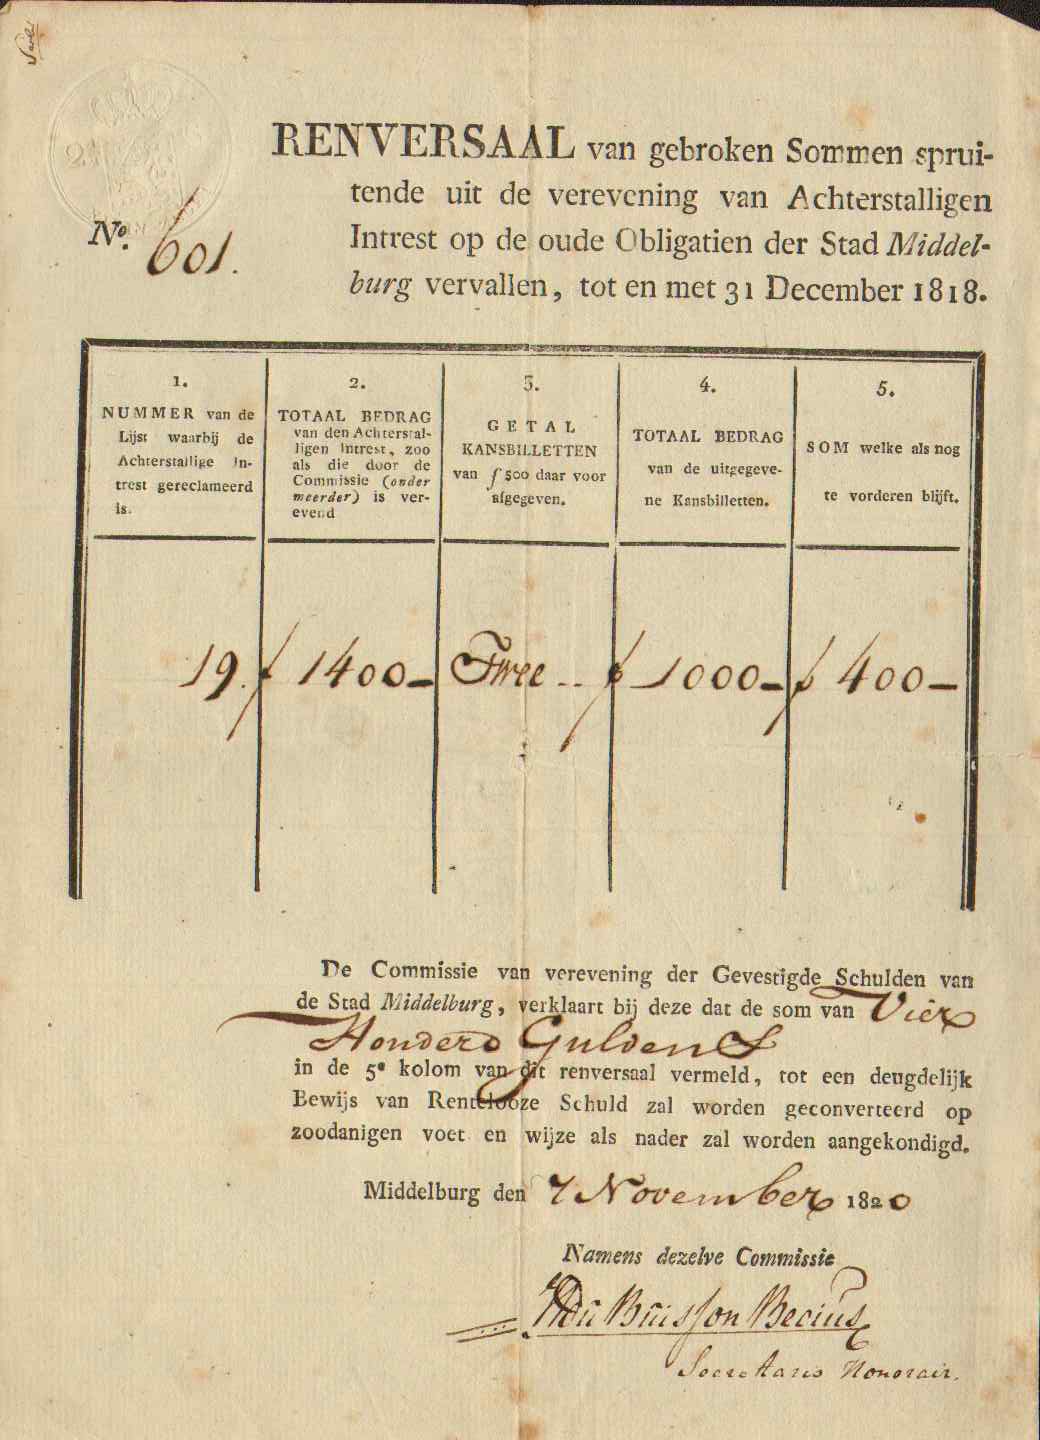 RENVERSAAL van gebroken Sommen sprui-
tende uit de verevening van Achterstalligen
Intrest op de oude Obligatien der Stad Middel-
burg vervallen, tot en met 31 December 1818.
No. 601.
1.
NUMMER van de
Lijst waarbij de
Achterstallige In-
trest gereclameerd
is.
2.
TOTAAL BEDRAG
van den Achterstal-
ligen Intrest, zoo
als die door de
Commissie (onder
meerder) is ver-
evend
3.
GETAL
KANSBILLETTEN
van ƒ 500 daar voor
afgegeven.
4.
TOTAAL BEDRAG
van de uitgegeve-
ne Kansbilletten.
5.
SOM welke als nog
te vorderen blijft.
19. ƒ 1400- Twee .. ƒ 1000- ƒ 400-
De Commissie van verevening der Gevestigde Schulden van
de Stad Middelburg, verklaart bij deze dat de som van Vier
Honderd Guldens
in de 5e kolom van dit renversaal vermeld, tot een deugdelijk
Bewijs van Rentelooze Schuld zal worden geconverteerd op
zoodanigen voet en wijze als nader zal worden aangekondigd.
Middelburg den 7 November 1820
Namens dezelve Commissie
du Buisson Becius
Secretaris Honorair.